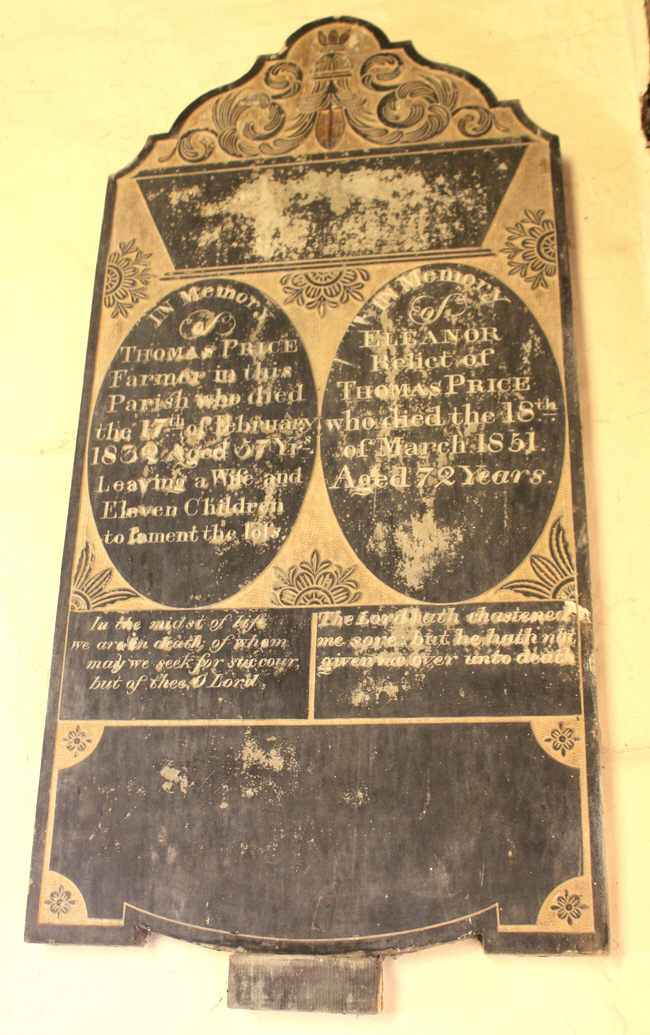 In Memory
of
Thomas Price
Farmer in this
Parish who died
the 17th of February
1832 Aged 57 Yrs
Leaving a Wife and
Eleven Children
to lament the loss.
In the midst of life
we are in death, of whom
may we seek for succour,
but of thee, O Lord
In Memory
of
Eleanor
Relict of
Thomas Price
who died the 18th
of March 1851.
Aged 72 Years.
The Lord hath chastened
me sore: but he hath not
given me over unto death